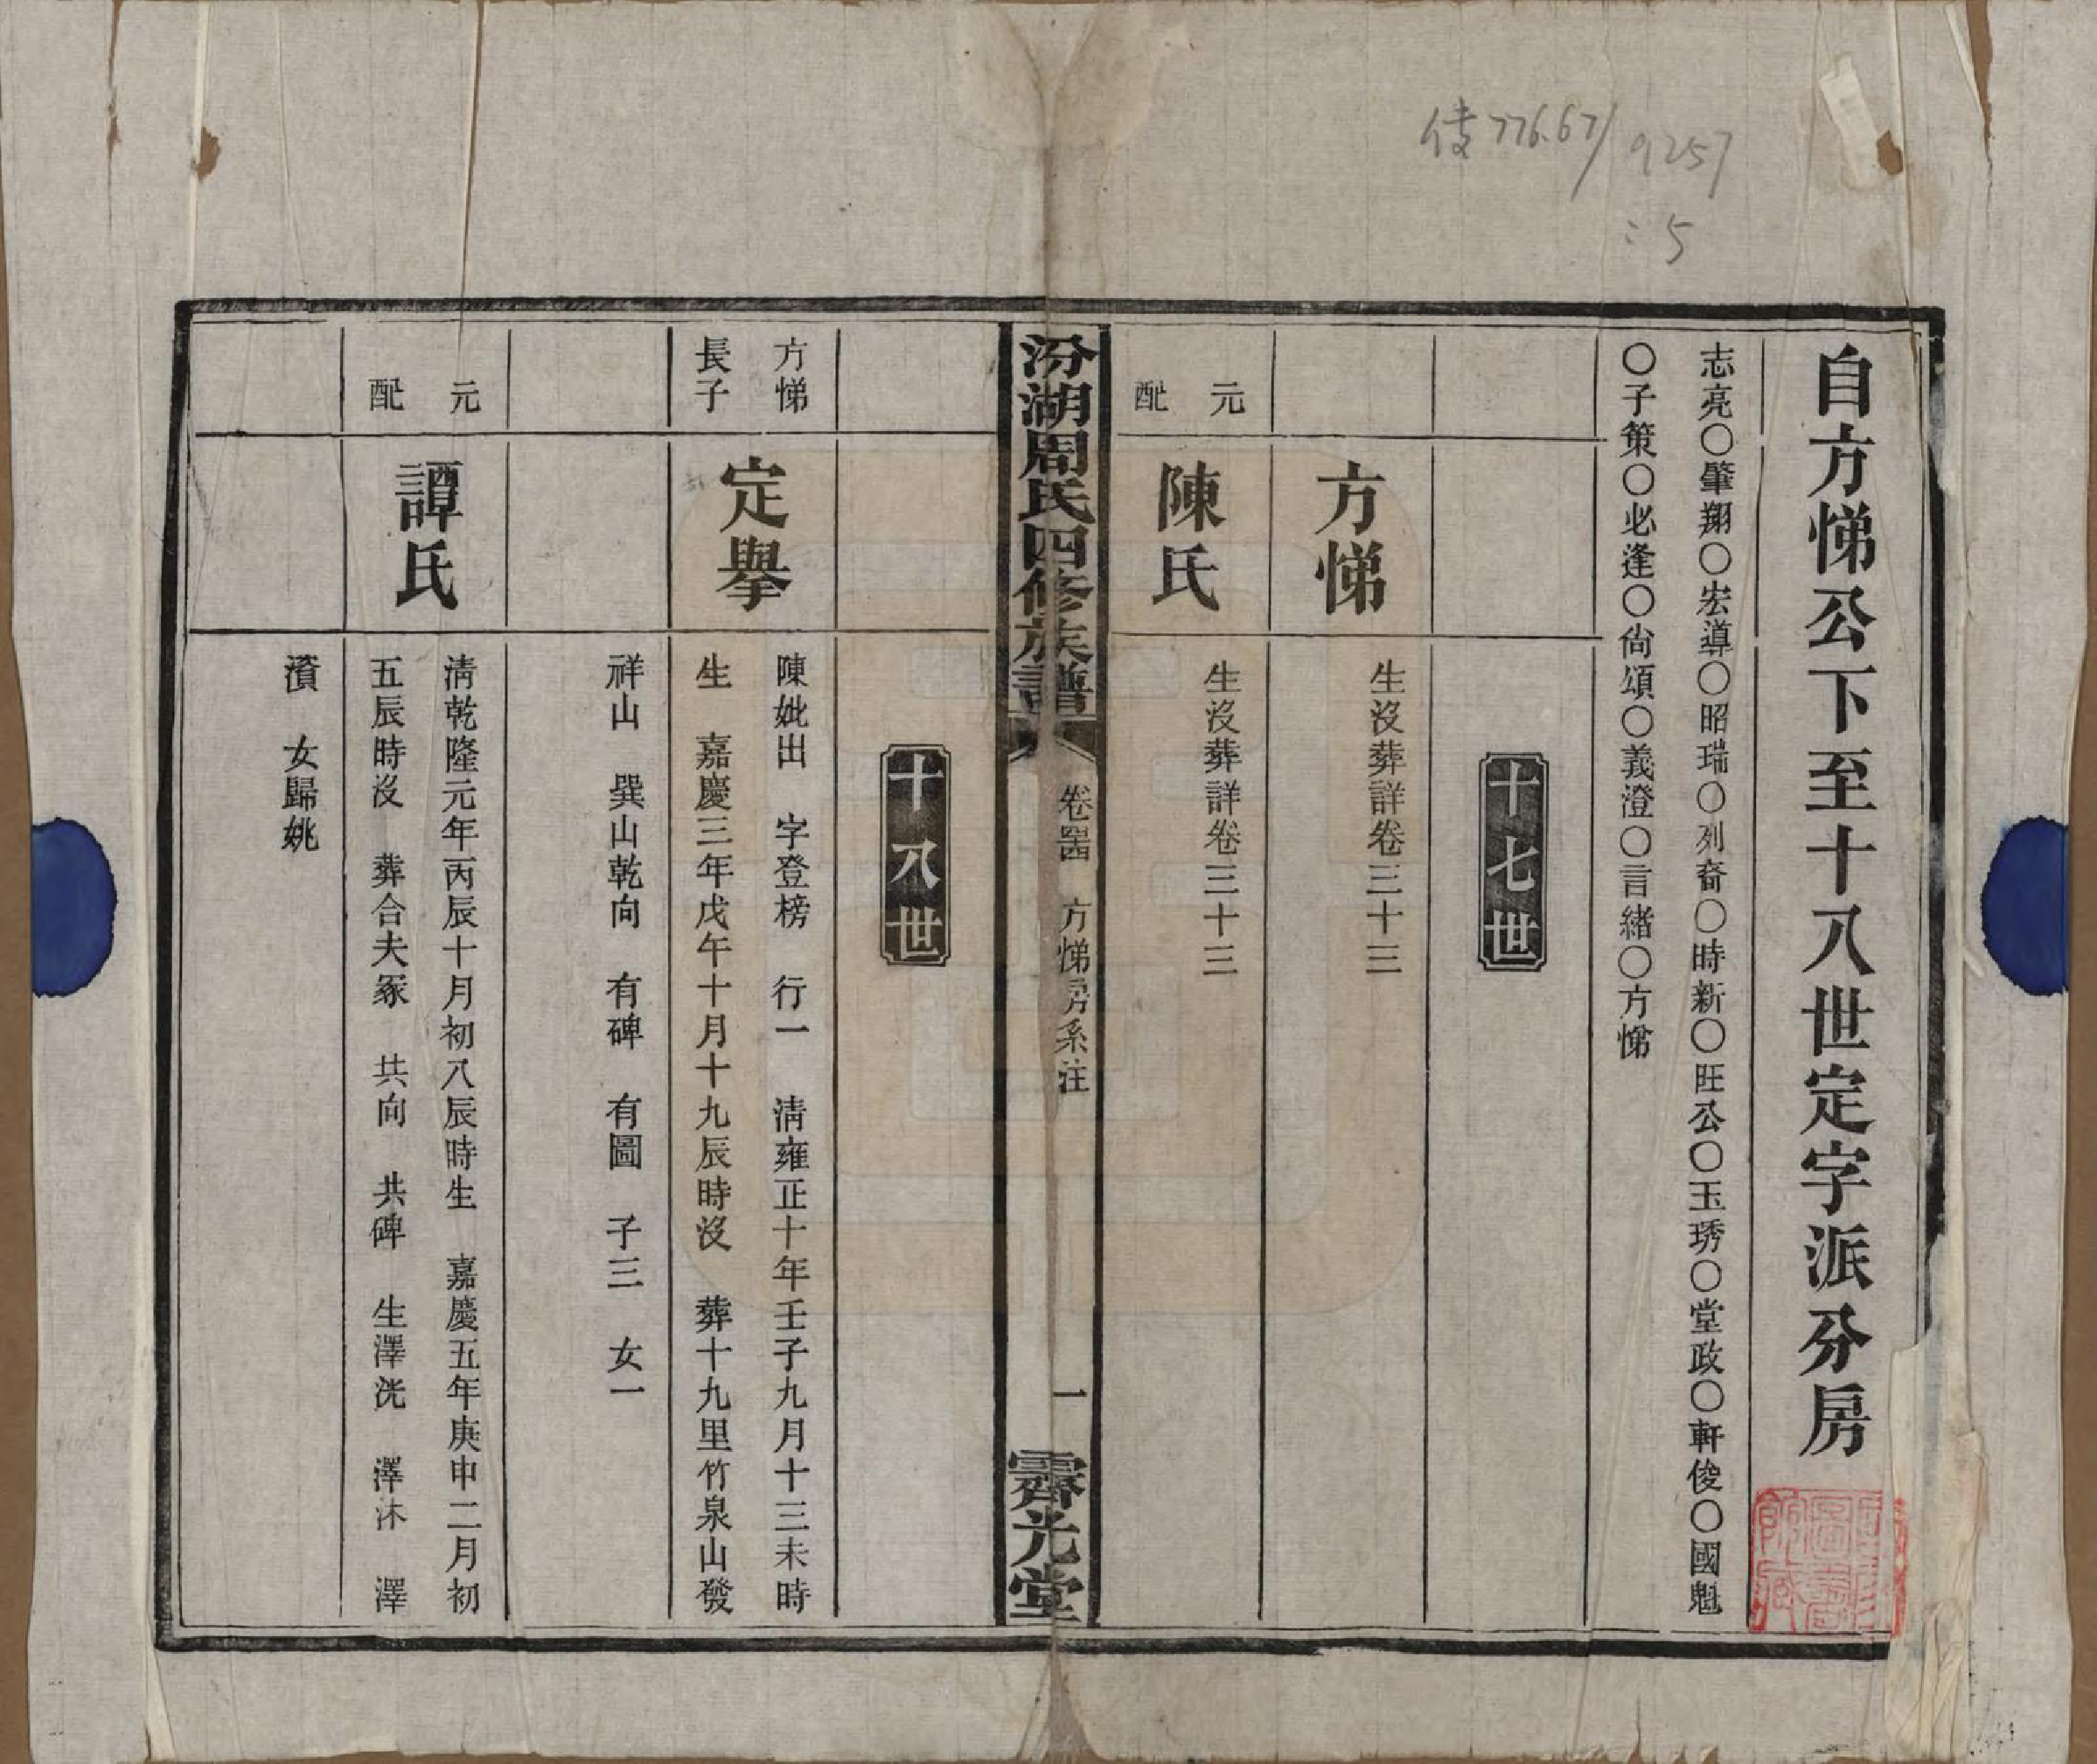 傳776.67/9257
:5
自方悌公下至十八世定字派分房
志亮〇肇翔〇宏導〇昭瑞〇列裔〇時新〇旺公〇玉琇〇堂政〇軒俊〇國魁
〇子策〇必逢〇尙頌〇義澄〇言緒〇方悌
十七世
方悌
生沒葬詳卷三十三
元配
陳氏
生沒葬詳卷三十三
汾湖周氏四修族譜
卷四
方悌房系注
一
霽光堂
十八世
方悌
長子
定舉
陳妣出 字登榜 行一 淸雍正十年壬子九月十三未時
生 嘉慶三年戊午十月十九辰時沒 葬十九里竹泉山發
祥山 巽山乾向 有碑 有圖 子三 女一
元配
譚氏
淸乾隆元年丙辰十月初八辰時生 嘉慶五年庚申二月初
五辰時沒 葬合夫冢 共向 共碑 生澤洸 澤沐 澤
濱 女歸姚